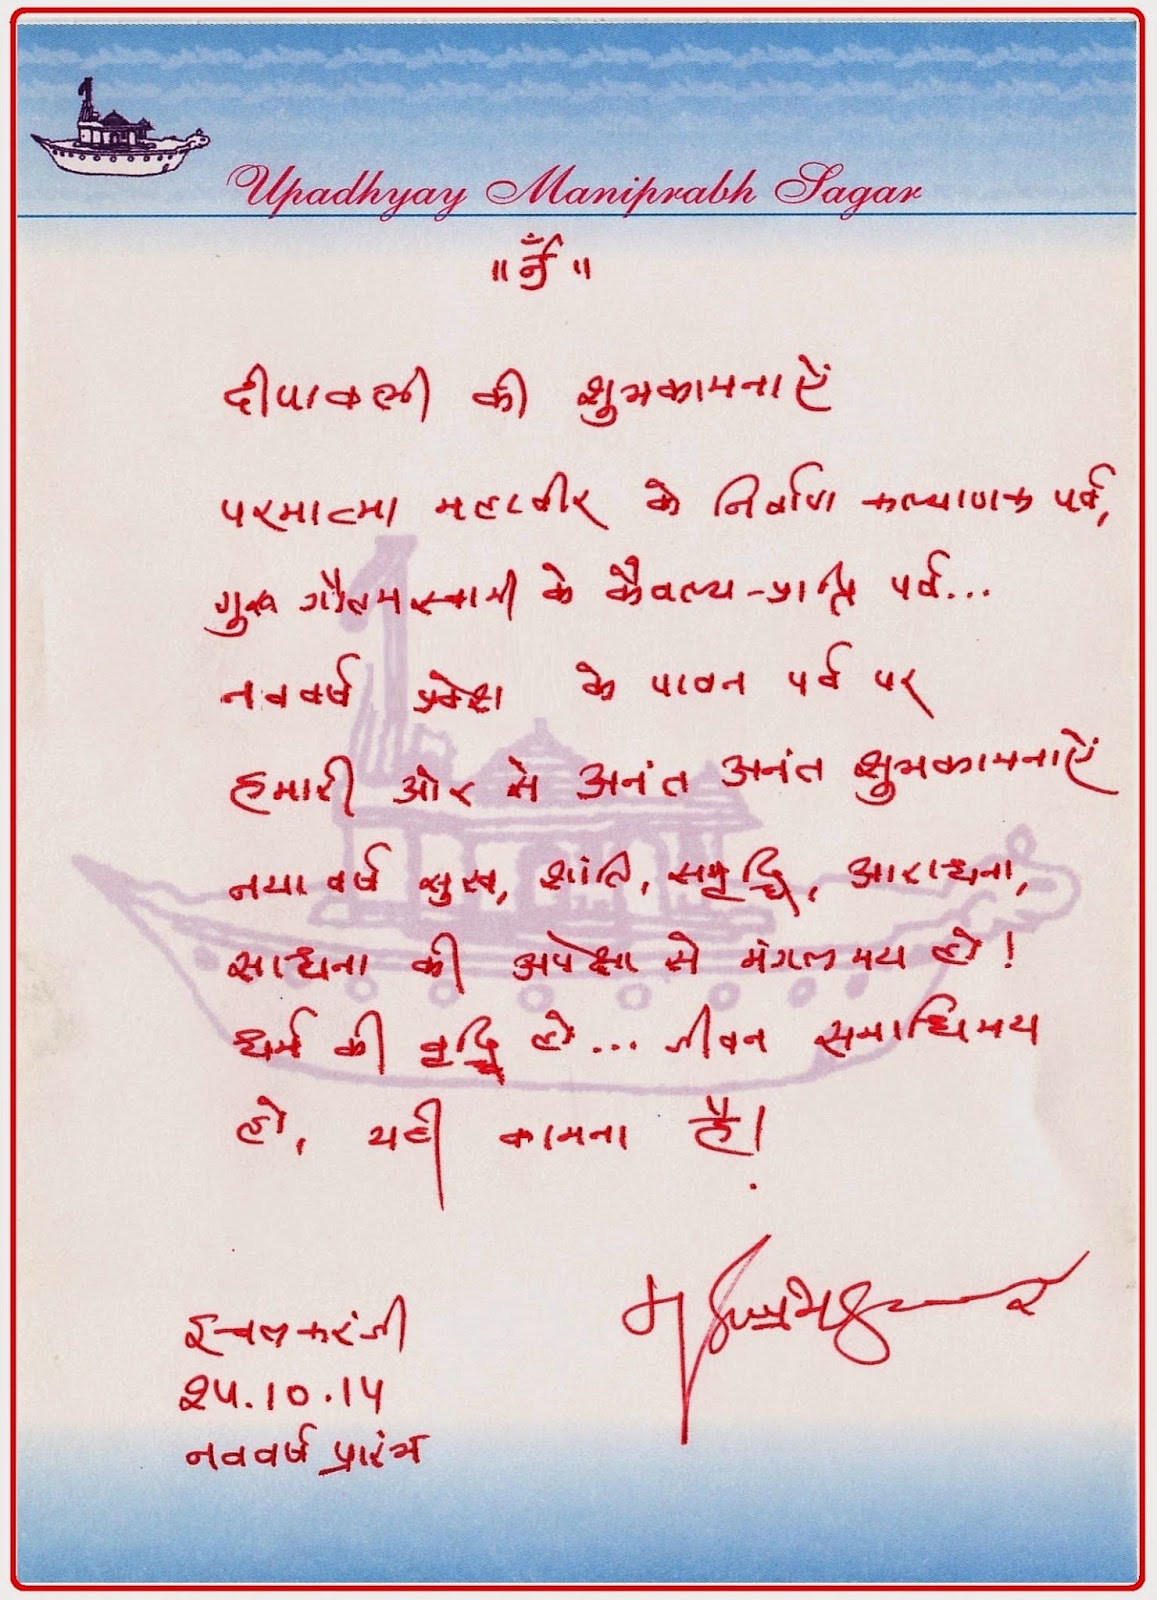 Upadhyay Maniprabh Sagar
दीपावली की शुभकामनाऐं
परमात्मा महावीर के निर्वाण कल्याणक पर्व,
गुरु गौतमस्वामी के कैवल्य-प्राप्ति पर्व...
नववर्ष प्रवेश के पावन पर्व पर
हमारी ओर से अनंत अनंत शुभकामनाऐं
नया वर्ष सुख, शांति, समृद्धि, आराधना,
साधना की अपेक्षा से मंगलमय हो!
धर्म की वृद्धि हो... जीवन समाधिमय
हो, यही कामना है।
इचलकरंजी
२५.10.14
नववर्ष प्रारंभ